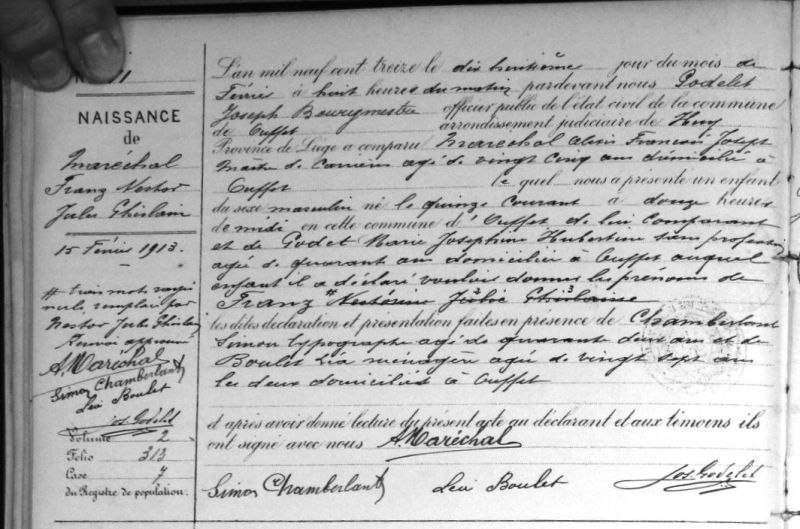 N° 11
NAISSANCE
de
Maréchal
Franz Nestor
Jules Ghislain
15 Février 1913.
# trois mots rayés
nuls, remplacés par
Nestor Jules Ghislain
Renvoi approuvé
A. Maréchal
Simon Chamberlant
Léa Boulet
Jos. Godelet
Volume 2
Folio 313
Case 7
du Registre de population.
L'an mil neuf cent treize le dix huitième jour du mois de
Février à huit heures du matin pardevant nous Godelet
Joseph Bourgmestre officier public de l'état civil de la commune
de Ouffet arrondissement judiciaire de Huy
Province de Liège a comparu Maréchal Alexis François Joseph
Maître de Carrières agé de vingt cinq ans domicilié à
Ouffet le quel nous a présenté un enfant
du sexe masculin né le quinze courant à douze heures
de midi en cette commune d'Ouffet de lui comparant
et de Godet Marie Joséphine Hubertine sans profession
agée de quarant ans domiciliée à Ouffet auquel
enfant il a déclaré vouloir donner les prénoms de
Franz # Nestorine Julie Ghislaine
les dites déclaration et présentation faites en présence de Chamberlant
Simon typographe agé de quarant deux ans et de
Boulet Léa ménagère agée de vingt sept ans
les deux domiciliés à Ouffet
et après avoir donné lecture du présent acte au déclarant et aux témoins ils
ont signé avec nous A. Maréchal
Simon Chamberlant Léa Boulet Jos. Godelet